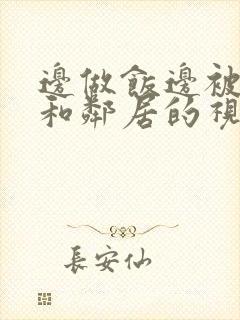 邊做飯邊被
和鄰居的視
長安仙